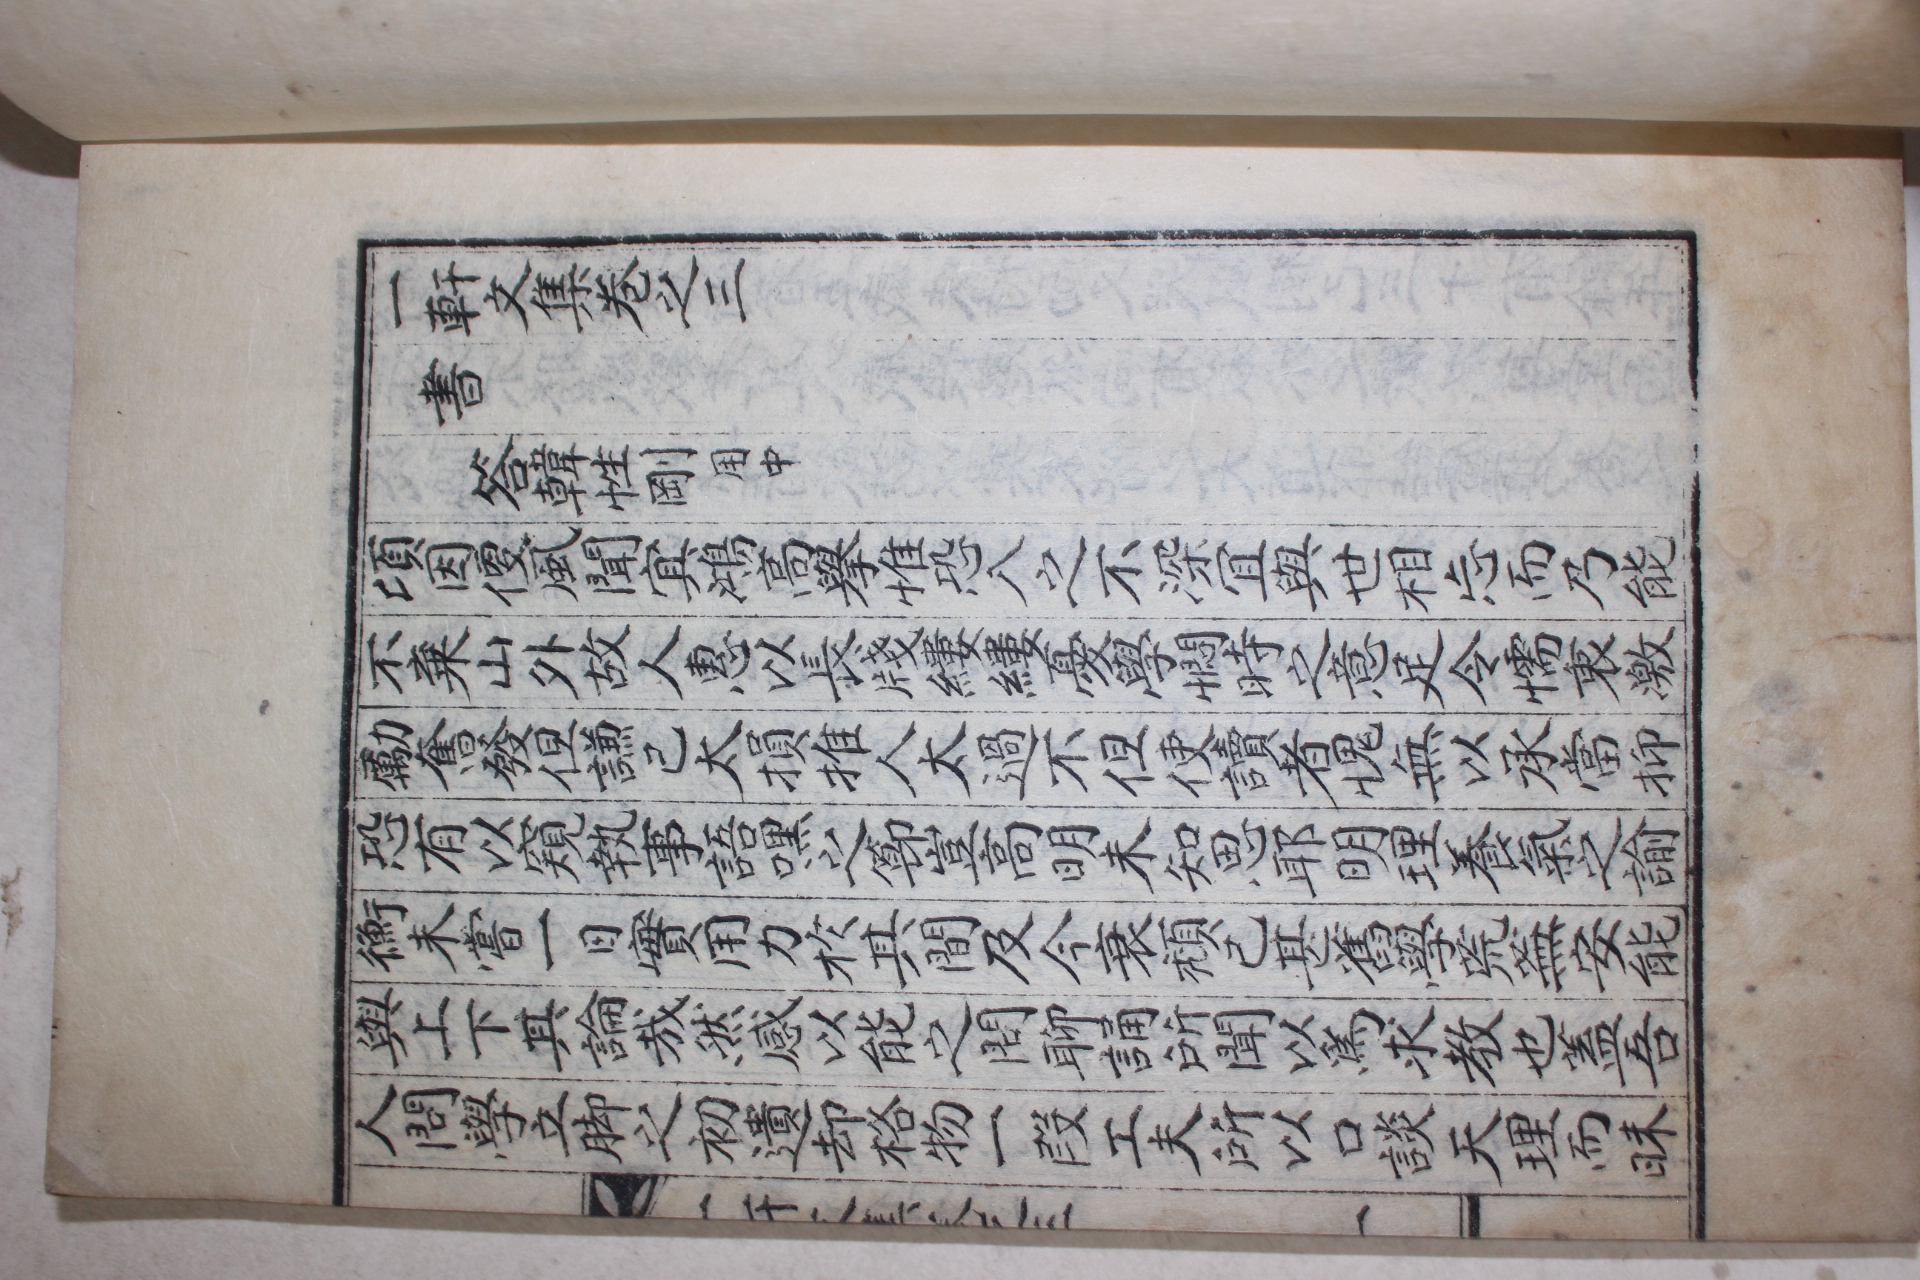 一軒文集卷之三
書
答韓性剛用中
頃因便風聞賓鴻高擧惟恐入之不深宜與世相忘而乃能
不棄山外故人惠以長牋縷縷憂學憫時之意足令懦衰激
勸奮發但謙己太損推人太過不但使讀者愧無以承當抑
恐有以窺執事語嘿之節豈高明未知思耶明理養氣之諭
衡未嘗一日實用力於其間及今衰頹已甚舊學荒蕪安能
與上下其論哉然感以能之問聊誦所聞以爲求教也蓋吾
人問學立脚之初遺却格物一段工夫所以口談天理而昧
一軒文集卷之三 一